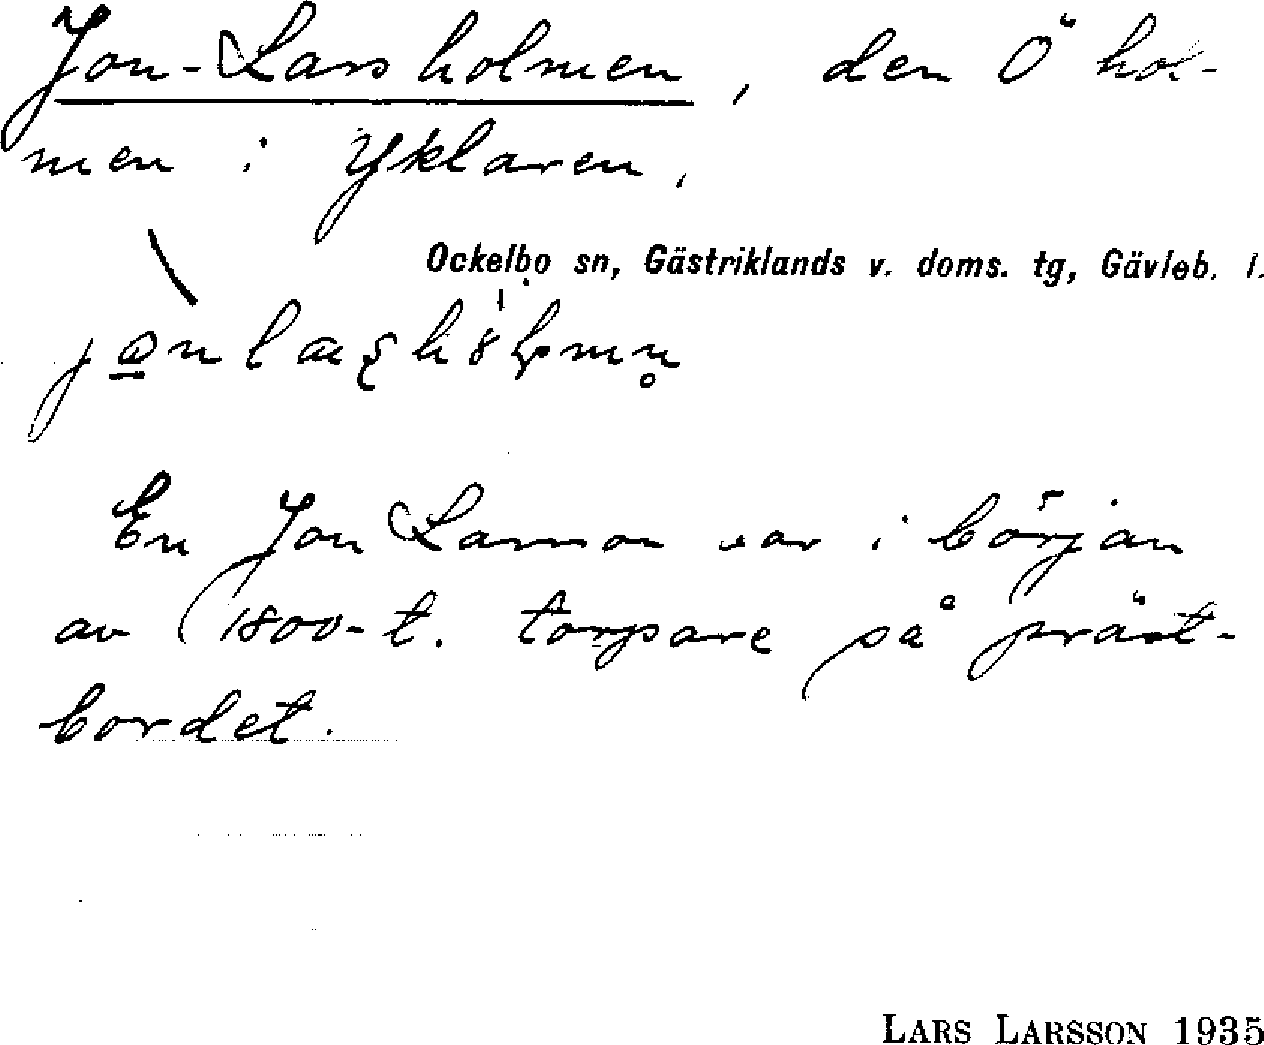 Jon-Larsholmen, den Ö hol-
men i Yklaren,
Ockelbo sn, Gästriklands v. doms. tg, Gävleb. l.
En Jon Larsson var i början
av 1800-t. torpare på präst-
bordet.
LARS LARSSON 1935